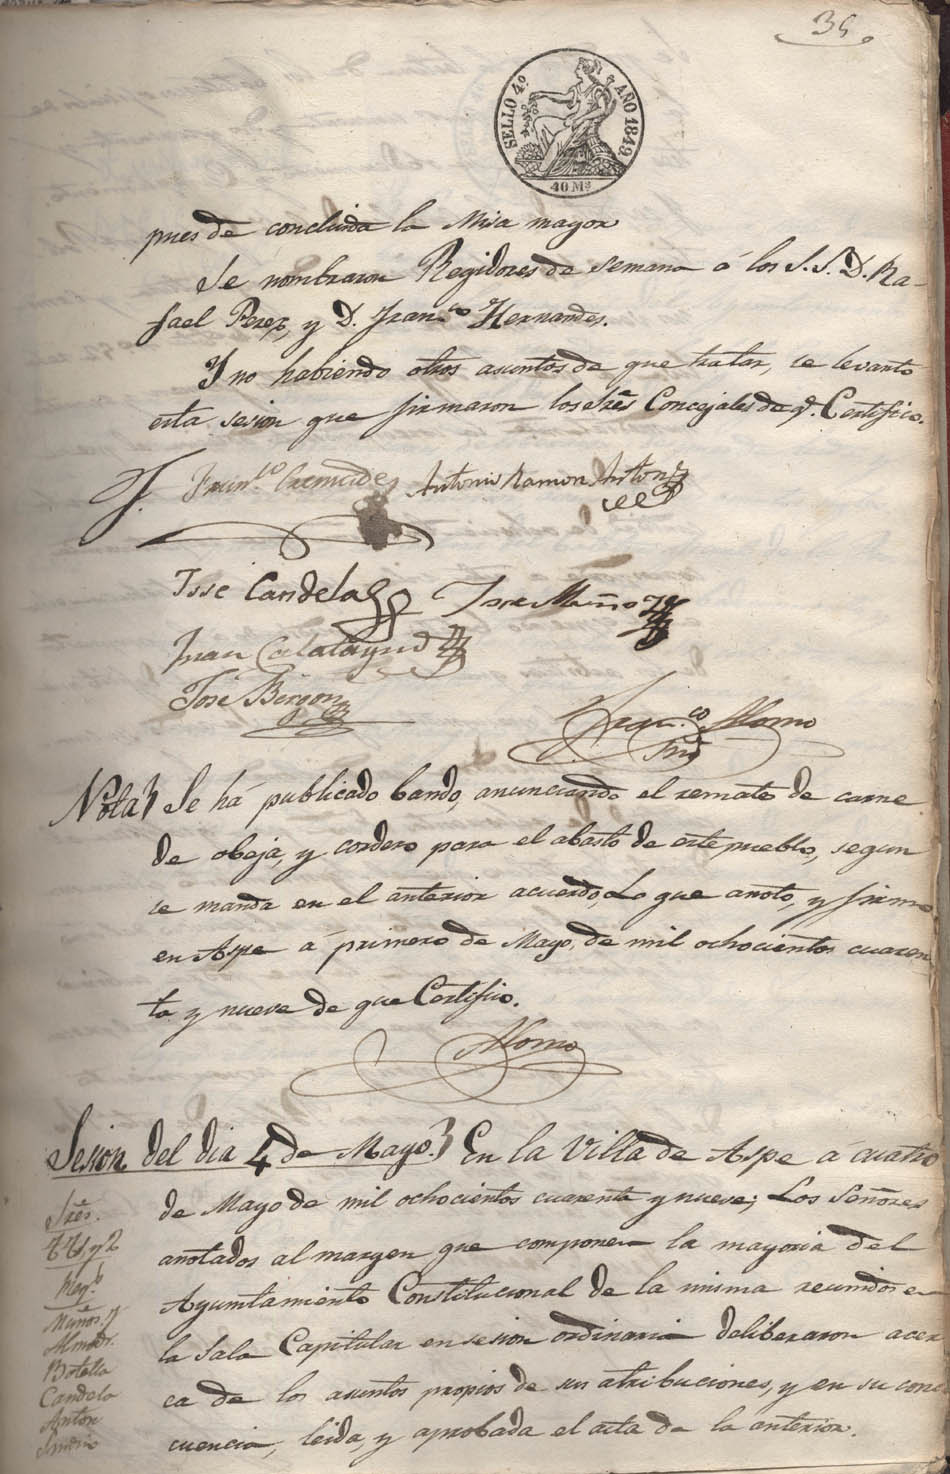 35
SELLO 4º AÑO 1849
40 Mˢ
pues de concluida la Misa mayor
Se nombraron Regidores de semana á los S.S. D. Ra-
fael Perez, y D. Franᶜᵒ Hernandes.
Y no habiendo otros asuntos de que tratar, se levantó
esta sesion que firmaron los Sres Concejales de qᵉ. Certifico.
Antonio Ramon Anton
Jose Candela Jose Muñoz
Juan Calatayud
Jose Bergon
Franᶜᵒ Alonso
Nota Se há publicado bando, anunciando el remate de carne
de obeja, y cordero para el abasto de este pueblo, segun
se manda en el anterior acuerdo, Lo que anoto, y firmo
en Aspe á primero de Mayo, de mil ochocientos cuaren-
ta y nueve de que Certifico.
Alonso
Sesion del dia 4 de Mayo. En la Villa de Aspe á cuatro
de Mayo de mil ochocientos cuarenta y nueve; Los Señores
anotados al margen que componen la mayoria del
Ayuntamiento Constitucional de la misma reunidos en
la Sala Capitular en sesion ordinaria deliberaron acer
ca de los asuntos propios de sus atribuciones, y en su conse
cuencia, leida, y aprobada el acta de la anterior.
Sres.
Muños
Almodr.
Botella
Candela
Anton